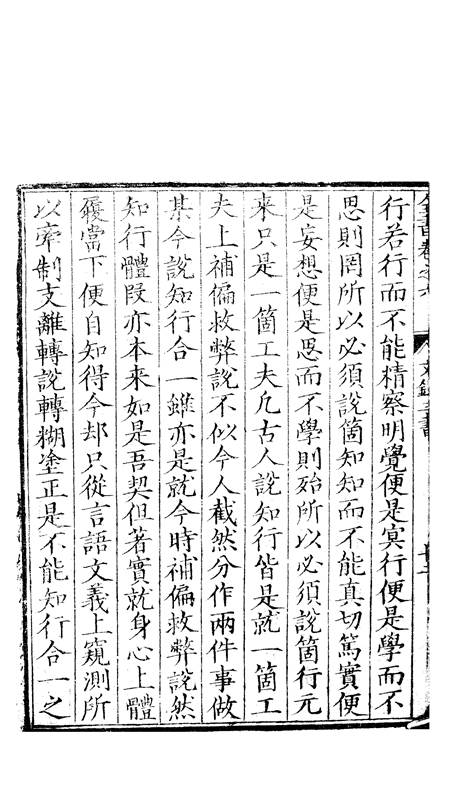 行若行而不能精察明覺便是冥行便是學而不
思則罔所以必須說箇知知而不能真切篤實便
是妄想便是思而不學則殆所以必須說箇行元
来只是一箇工夫凡古人說知行皆是就一箇工
夫上補偏救弊說不似今人截然分作兩件事做
某今說知行合一雖亦是就今時補偏救弊說然
知行體段亦本来如是吾契但著實就身心上體
履當下便自知得今却只從言語文義上窺測所
以牽制支離轉說轉糊塗正是不能知行合一之